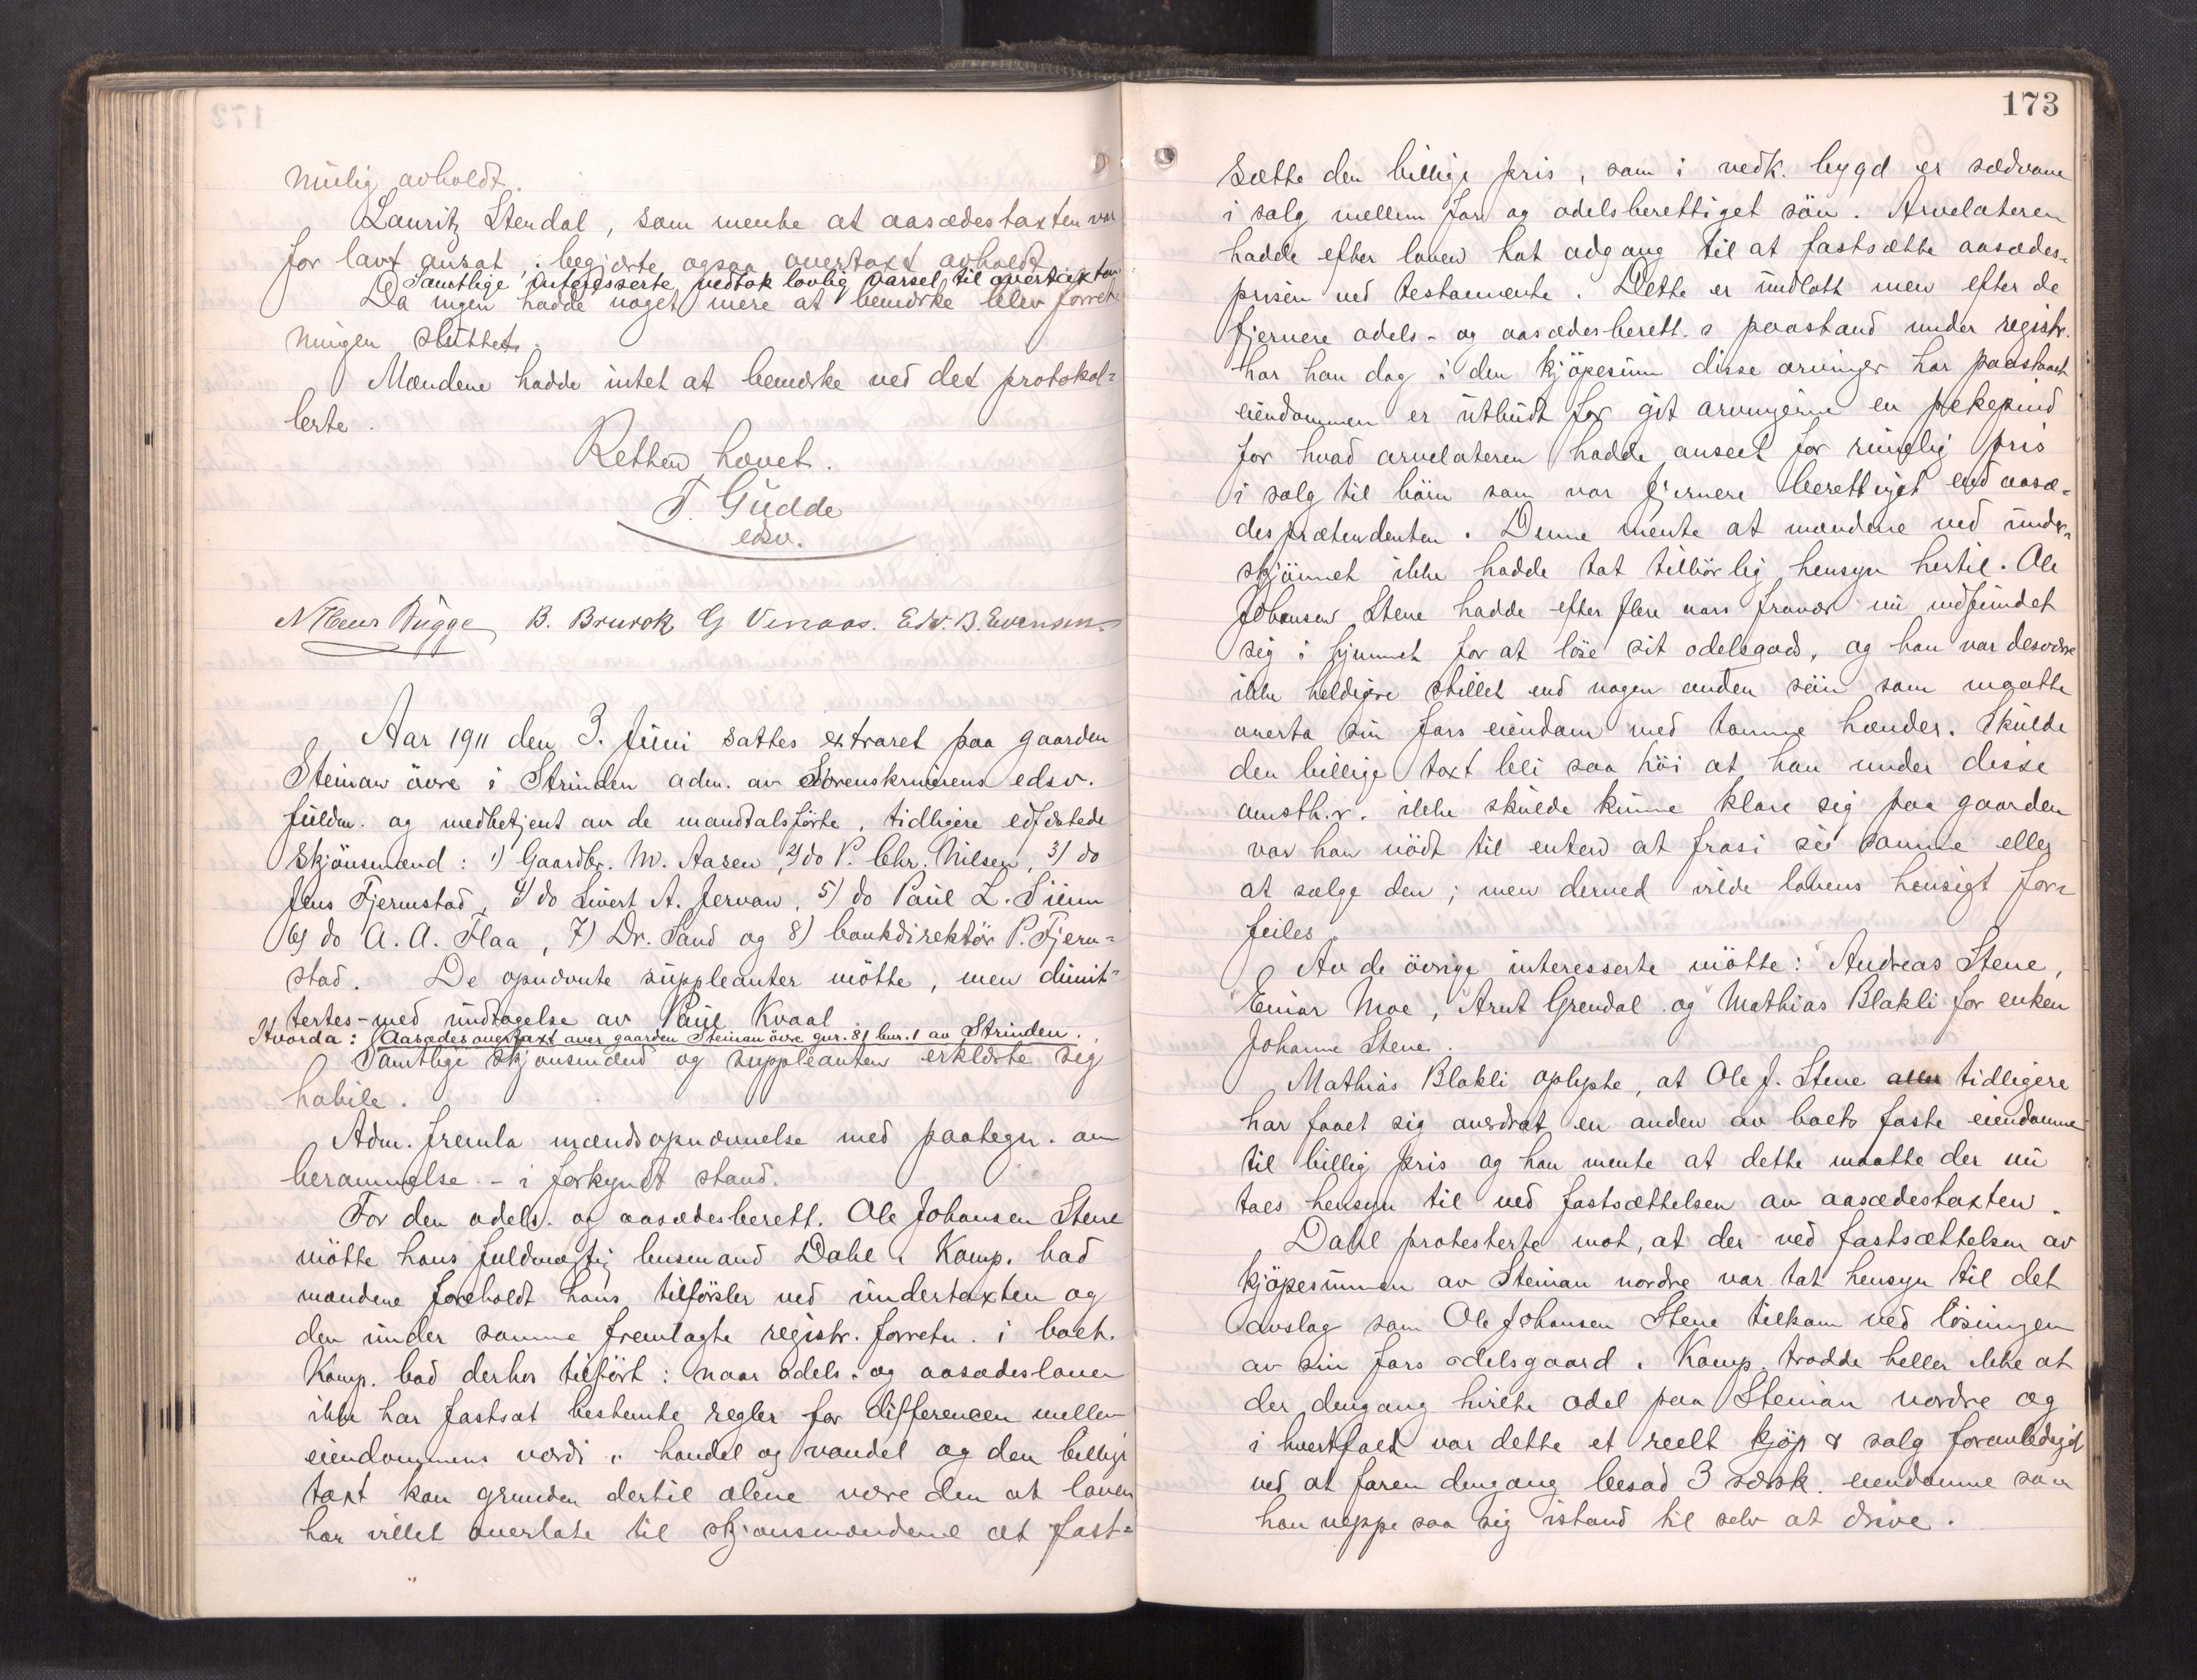 mulig avholdt.
Lauritz Stendal, som mente at aasædestaxten var
for lavt ansat, begjærte ogsaa overtaxt avholdt.
Samtlige interesserte vedtok lovlig varsel til overtaxten
Da ingen hadde noget mere at bemærke blev forret-
ningen sluttet.
Mændene hadde intet at bemærke ved det protokol=
lerte.
Retten hævet.
T. Gudde
edsv.
B. Brurok G Vinaas. Edv. B. Evensen
Aar 1911 den 3. Juni sattes extraret paa gaarden
Steinan övre i Strinden adm. av Sorenskriverens edsv.
fuldm. og medbetjent av de mandtalsförte, tidligere edfæstede
skjönsmænd: 1) Gaardbr. M. Aasen, 2) do P. Chr. Nilsen, 3) do
Jens Fjermstad, 4) do Sivert A. Jervan, 5) do Paul L. Siem
6) do A. A. Flaa, 7) Dr. Sand og 8) bankdirektör P. Fjerm=
stad. De opnævnte suppleanter mötte, men dimit=
tertes - med undtagelse av Paul Kvaal
Hvorda: Aasædesovertaxt over gaarden Steinan övre gnr. 81 bnr. 1 av Strinden.
Samtlige skjönsmænd og suppleanten erklærte sig
habile.
Adm. fremla mændsopnævnelse med paategn. om
berammelse - i forkyndt stand.
For den odels- og aasædesberett. Ole Johansen Stene
mötte hans fuldmægtig husmand Dahl. Komp. bad
mændene foreholdt hans tilförsler ved undertaxten og
den under samme fremlagte registr. forretn. i boet.
Komp. bad derhos tilfört: naar odels- og aasædesloven
ikke har fastsat bestemte regler for differencen mellem
eiendommens værdi i handel og vandel og den billige
taxt kan grunden dertil alene være den at loven
har villet overlate til skjönsmændene at fast=
173
sætte den billige pris, som i vedk. bygd er sædvane
i salg mellem far og odelsberettiget sön. Arvelateren
hadde efter loven hat adgang til at fastsætte aasædes=
prisen ved testamente. Dette er undlatt men efter de
fjernere odels- og aasædesberett.s paastand under registr.
har han dog i den kjöpesum disse arvinger har paastaat
eiendommen er utbudt for git arvingerne en pekepind
for hvad arvelateren hadde anseet for rimelig pris
i salg til börn som var fjernere berettiget end aasæ=
desprætendenten. Denne mente at mændene ved under=
skjönnet ikke hadde tat tilbörlig hensyn hertil. Ole
Johansen Stene hadde efter flere aars fravær nu indfundet
sig i hjemmet for at löse sit odelsgods, og han var desværre
ikke heldigere stillet end nogen anden sön som maatte
overta sin fars eiendom med tomme hænder. Skulde
den billige taxt bli saa höi at han under disse
omsth.r. ikke skulde kunne klare sig paa gaarden
var han nödt til enten at frasi sig samme eller
at sælge den; men derved vilde lovens hensigt for=
feiles.
Av de övrige interesserte mötte: Andreas Stene,
Einar Moe, Arnt Grendal og Mathias Blakli for enken
Johanne Stene.
Mathias Blakli oplyste, at Ole J. Stene tidligere
har faaet sig overdrat en anden av boets faste eiendomme
til billig pris og han mente at dette maatte der nu
taes hensyn til ved fastsættelsen av aasædestaxten.
Dahl protesterte mot, at der ved fastsættelsen av
kjöpesummen av Steinan nordre var tat hensyn til det
avslag som Ole Johansen Stene tilkom ved lösningen
av sin fars odelsgaard. Komp. trodde heller ikke at
der dengang hvilte odel paa Steinan nordre og
i hvertfald var dette et reelt kjöp & salg foranlediget
ved at faren dengang besad 3 særsk. eiendomme som
han neppe saa sig istand til selv at drive.